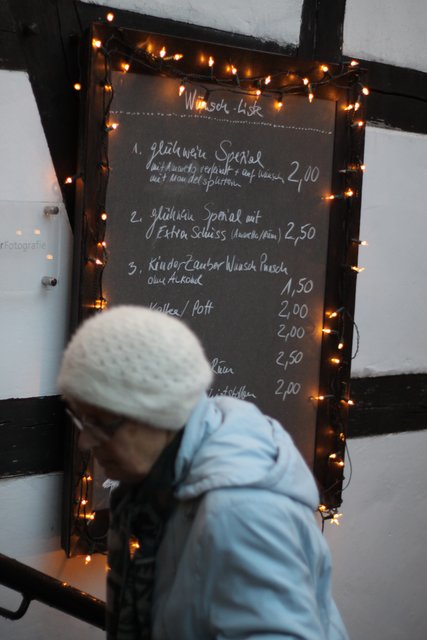 Wunsch-Liste
1. glühwein Spezial 2,00
mit Amaretto verfeinert + auf Wunsch
mit Mandelsplittern
2. glühwein Spezial mit
Extra Schuss (Amaretto/Rum) 2,50
3. KinderZauberWunschPunsch
ohne Alkohol 1,50
Kaffee/Pott 2,00
2,00
Rum 2,50
2,00
rFotografie